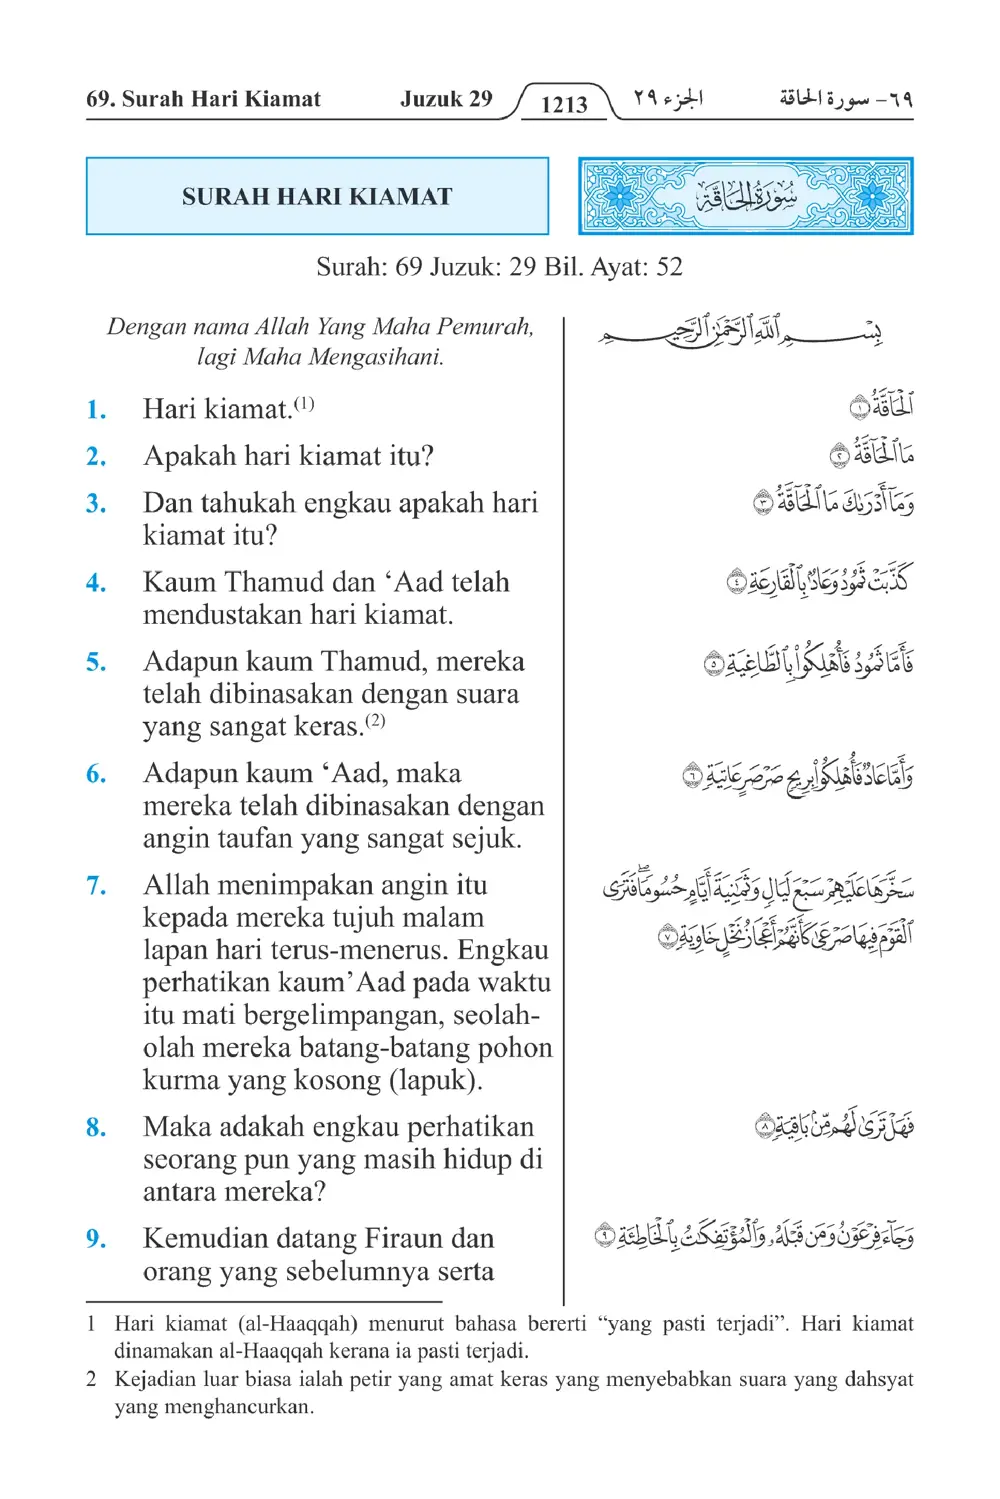 69. Surah Hari Kiamat Juzuk 29 1213 الجزء ٢٩ ٦٩- سورة الحاقة
SURAH HARI KIAMAT
سُورَةُ الحَاقَّةِ
Surah: 69 Juzuk: 29 Bil. Ayat: 52
Dengan nama Allah Yang Maha Pemurah,
lagi Maha Mengasihani.
بِسْمِ ٱللَّهِ ٱلرَّحْمَٰنِ ٱلرَّحِيمِ
1. Hari kiamat.(1)
ٱلْحَآقَّةُ ١
2. Apakah hari kiamat itu?
مَا ٱلْحَآقَّةُ ٢
3. Dan tahukah engkau apakah hari
kiamat itu?
وَمَآ أَدْرَىٰكَ مَا ٱلْحَآقَّةُ ٣
4. Kaum Thamud dan ‘Aad telah
mendustakan hari kiamat.
كَذَّبَتْ ثَمُودُ وَعَادٌۢ بِٱلْقَارِعَةِ ٤
5. Adapun kaum Thamud, mereka
telah dibinasakan dengan suara
yang sangat keras.(2)
فَأَمَّا ثَمُودُ فَأُهْلِكُوا۟ بِٱلطَّاغِيَةِ ٥
6. Adapun kaum ‘Aad, maka
mereka telah dibinasakan dengan
angin taufan yang sangat sejuk.
وَأَمَّا عَادٌ فَأُهْلِكُوا۟ بِرِيحٍ صَرْصَرٍ عَاتِيَةٍ ٦
7. Allah menimpakan angin itu
kepada mereka tujuh malam
lapan hari terus-menerus. Engkau
perhatikan kaum’Aad pada waktu
itu mati bergelimpangan, seolah-
olah mereka batang-batang pohon
kurma yang kosong (lapuk).
سَخَّرَهَا عَلَيْهِمْ سَبْعَ لَيَالٍ وَثَمَٰنِيَةَ أَيَّامٍ حُسُومًا ۖ فَتَرَى
ٱلْقَوْمَ فِيهَا صَرْعَىٰ كَأَنَّهُمْ أَعْجَازُ نَخْلٍ خَاوِيَةٍ ٧
8. Maka adakah engkau perhatikan
seorang pun yang masih hidup di
antara mereka?
فَهَلْ تَرَىٰ لَهُم مِّنۢ بَاقِيَةٍ ٨
9. Kemudian datang Firaun dan
orang yang sebelumnya serta
وَجَآءَ فِرْعَوْنُ وَمَن قَبْلَهُۥ وَٱلْمُؤْتَفِكَٰتُ بِٱلْخَاطِئَةِ ٩
1 Hari kiamat (al-Haaqqah) menurut bahasa bererti “yang pasti terjadi”. Hari kiamat
dinamakan al-Haaqqah kerana ia pasti terjadi.
2 Kejadian luar biasa ialah petir yang amat keras yang menyebabkan suara yang dahsyat
yang menghancurkan.